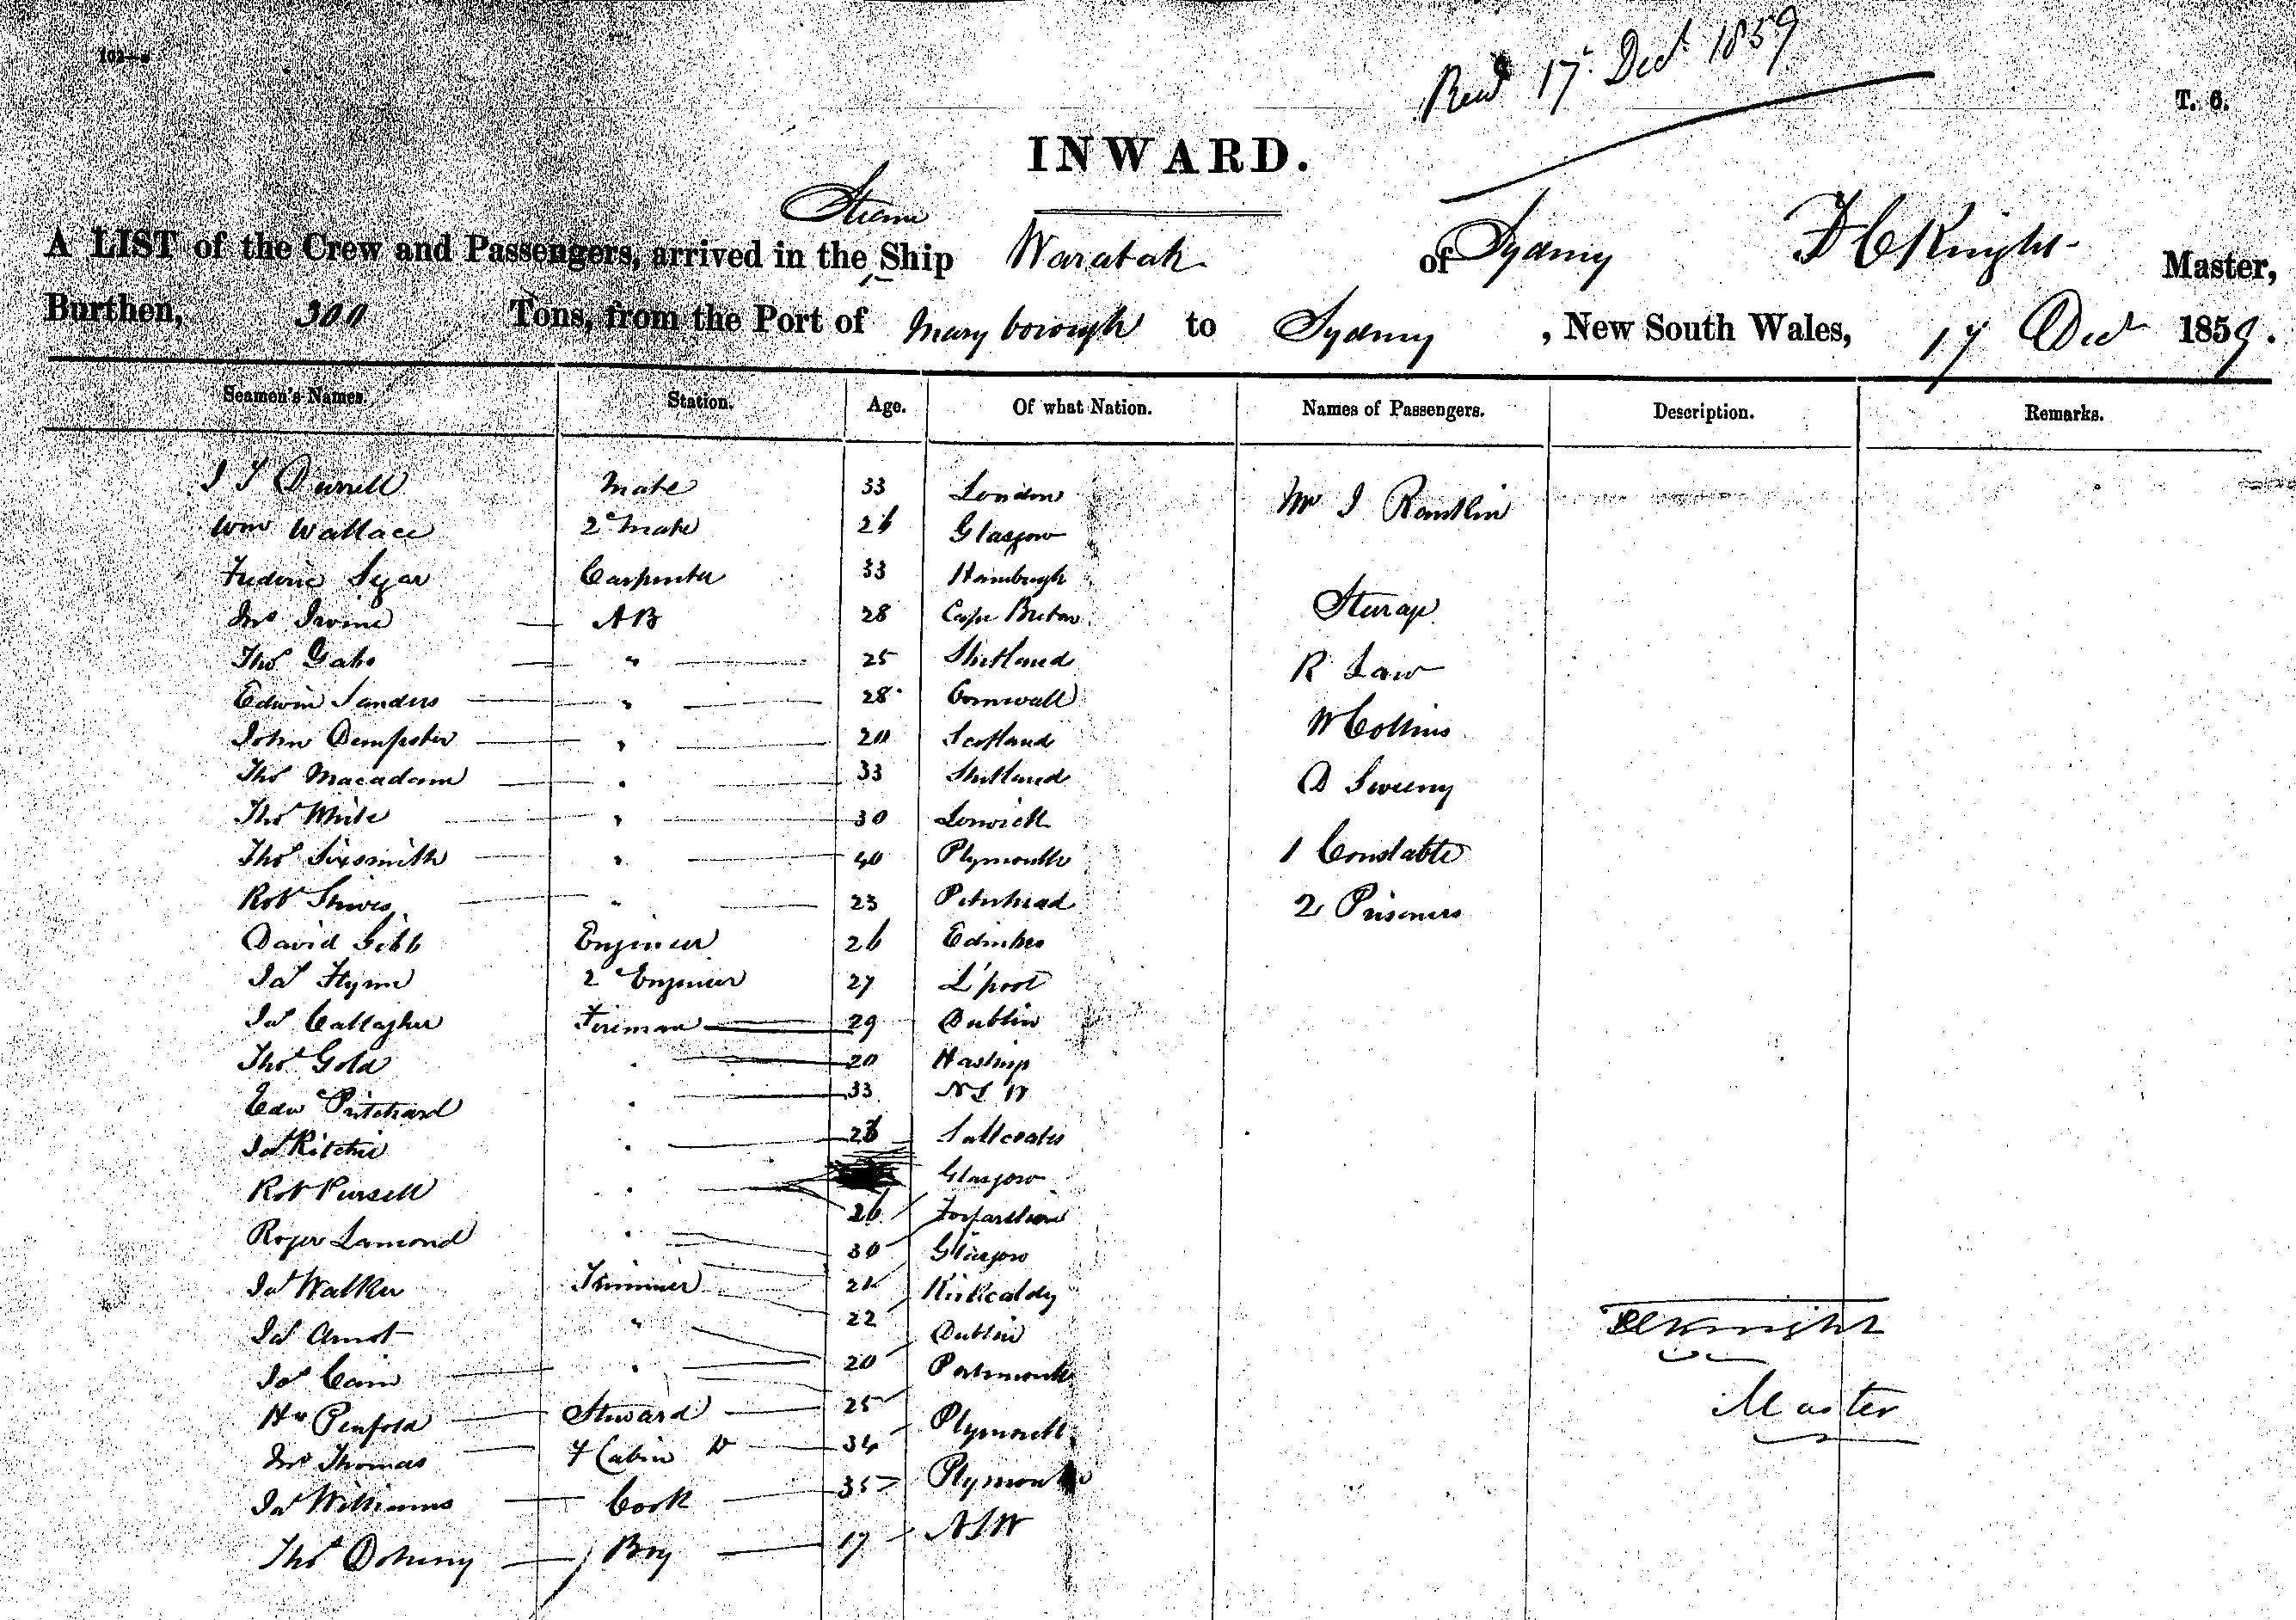 102—a
Recd 17 Decr 1859
T. 6.
INWARD.
Steam
A LIST of the Crew and Passengers, arrived in the Ship Waratah of Sydney D C Knight Master,
Burthen, 300 Tons, from the Port of Mary borough to Sydney, New South Wales, 17 Decr 1859.
Seamen's Names. Station. Age. Of what Nation. Names of Passengers. Description. Remarks.
J J Durrell Mate 33 London Mr J Rantlin
Wm Wallace 2d Mate 26 Glasgow
Frederic Sejar Carpenter 33 Hamburgh
Jno Irvine AB 28 Cape Breton Sturage
Thos Gaho " 25 Shetland R Law
Edwin Sanders " 28 Cornwall
John Dempster " 20 Scotland W Collins
Thos Macadam " 33 Shetland D Sweeny
Thos White " 30 Lerwick
Thos Sixsmith " 40 Plymouth 1 Constable
Robt Shives " 23 Peterhead 2 Prisoners
David Gibb Engineer 26 Edinbro
Jas Flynn 2d Engineer 27 L'pool
Jas Callagher Fireman 29 Dublin
Thos Gold " 20 Hastings
Edw Pritchard " 33 N S W
Jas Ritchie " 28 Saltcoates
Robt Pursell " Glasgow
26 Forfarshire
Roger Lamond " 30 Glasgow
Jas Walker Trimmer 21 Kirkcaldy
Jas Arnot " 22 Dublin
Jas Cain " 20 Portsmouth
Hy Penfold Steward 25 Plymouth
Jno Thomas F Cabin Do 34 Plymouth
Jas Williams Cook 35 NSW
Thos Doheny Boy 17
DCKnight
Master